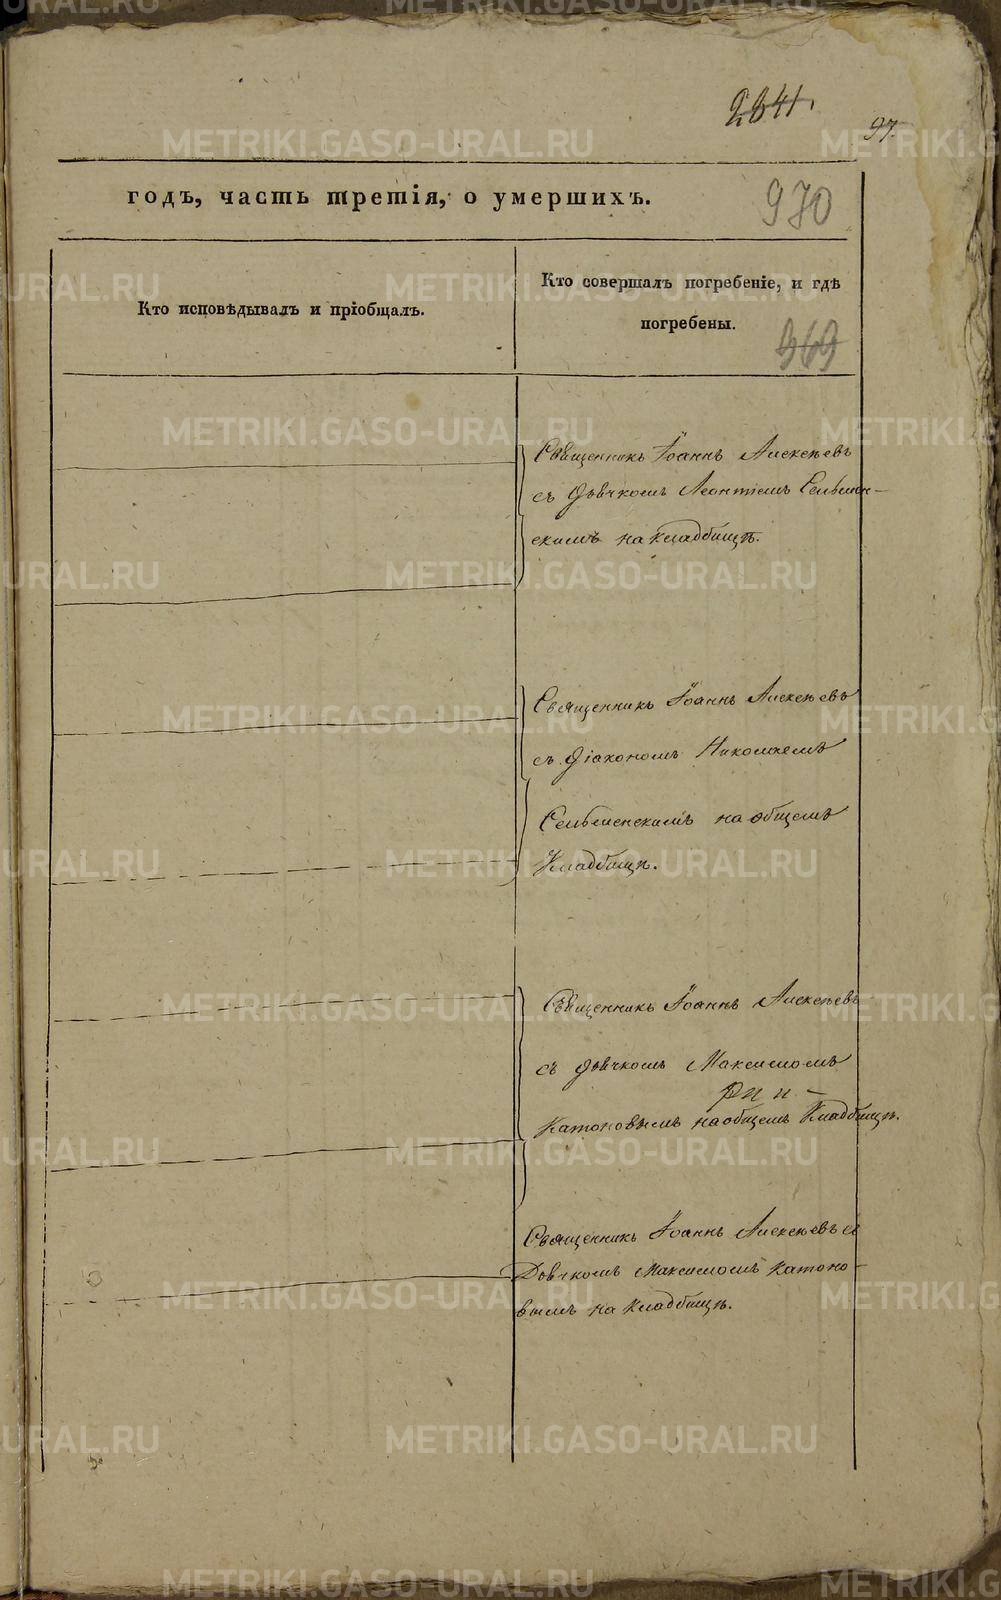 2641.
97.
годъ, часть третія, о умершихъ.
970
Кто исповѣдывалъ и пріобщалъ.
Кто совершалъ погребеніе, и гдѣ
погребены.
969
Священникъ Іоаннъ Алексѣевъ
съ дьячкомъ Леонтіемъ Сельмен-
скимъ на кладбищѣ.
Священникъ Іоаннъ Алексѣевъ
съ діакономъ Николаемъ
Сельменскимъ на общемъ
кладбищѣ.
Священникъ Іоаннъ Алексѣевъ
съ дьячкомъ Максимомъ
Катоновымъ на общемъ кладбищѣ.
Священникъ Іоаннъ Алексѣевъ съ
Дьячкомъ Максимомъ Катоно-
вымъ на кладбищѣ.
METRIKI.GASO-URAL.RU